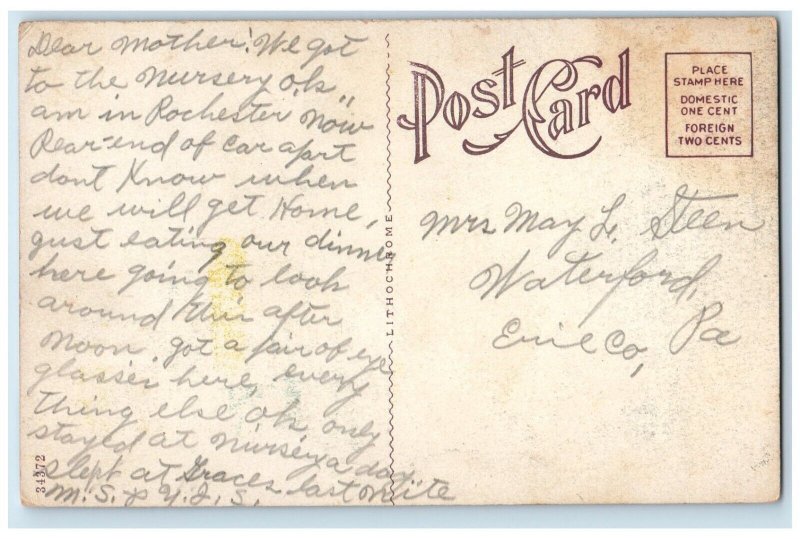 Dear Mother: We got
to the Nursery o.k.,
am in Rochester Now
Rear-end of car apart
dont Know when
we will get Home,
gust eating our dinner
here going to look
around this after
Noon. got a pair of eye
glasses here, every
thing else ok, only
stayed at Nursery a day
slept at Graces last nite
M. S. & Y. J. S.
34372
LITHOCHROME
Post Card
PLACE
STAMP HERE
DOMESTIC
ONE CENT
FOREIGN
TWO CENTS
Mrs May L. Steen
Waterford,
Erie Co, Pa